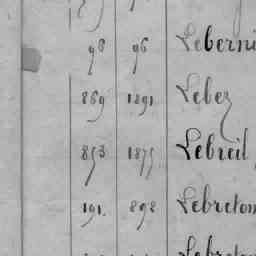 98 96 Leberni
869 1891 Lebez
853 1875 Lebreil
191. 892 Lebreton
Lebreton